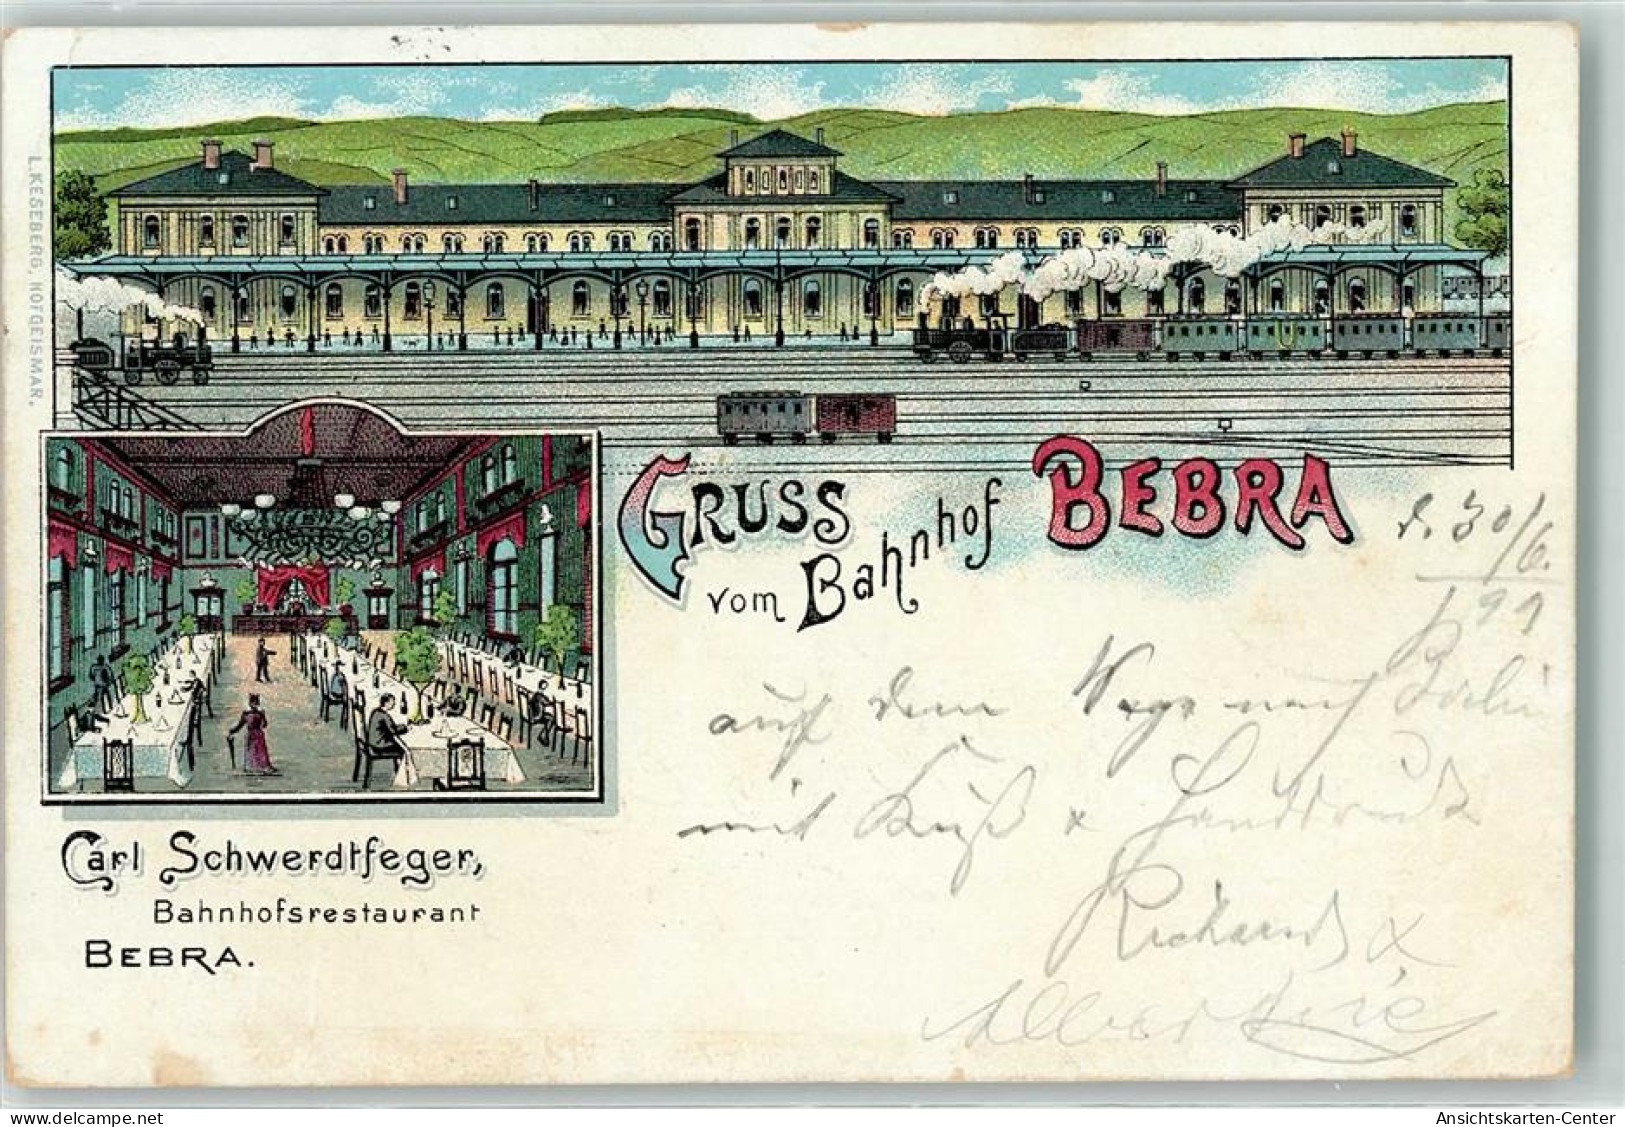 L. KESEBERG, HOFGEISMAR.
GRUSS
vom Bahnhof BEBRA
d. 30/6.
99
auf dem Wege nach Berlin
mit Kuß & Händedruck
Richard &
Albertine
Carl Schwerdtfeger,
Bahnhofsrestaurant
BEBRA.
delcampe.net
Ansichtskarten-Center